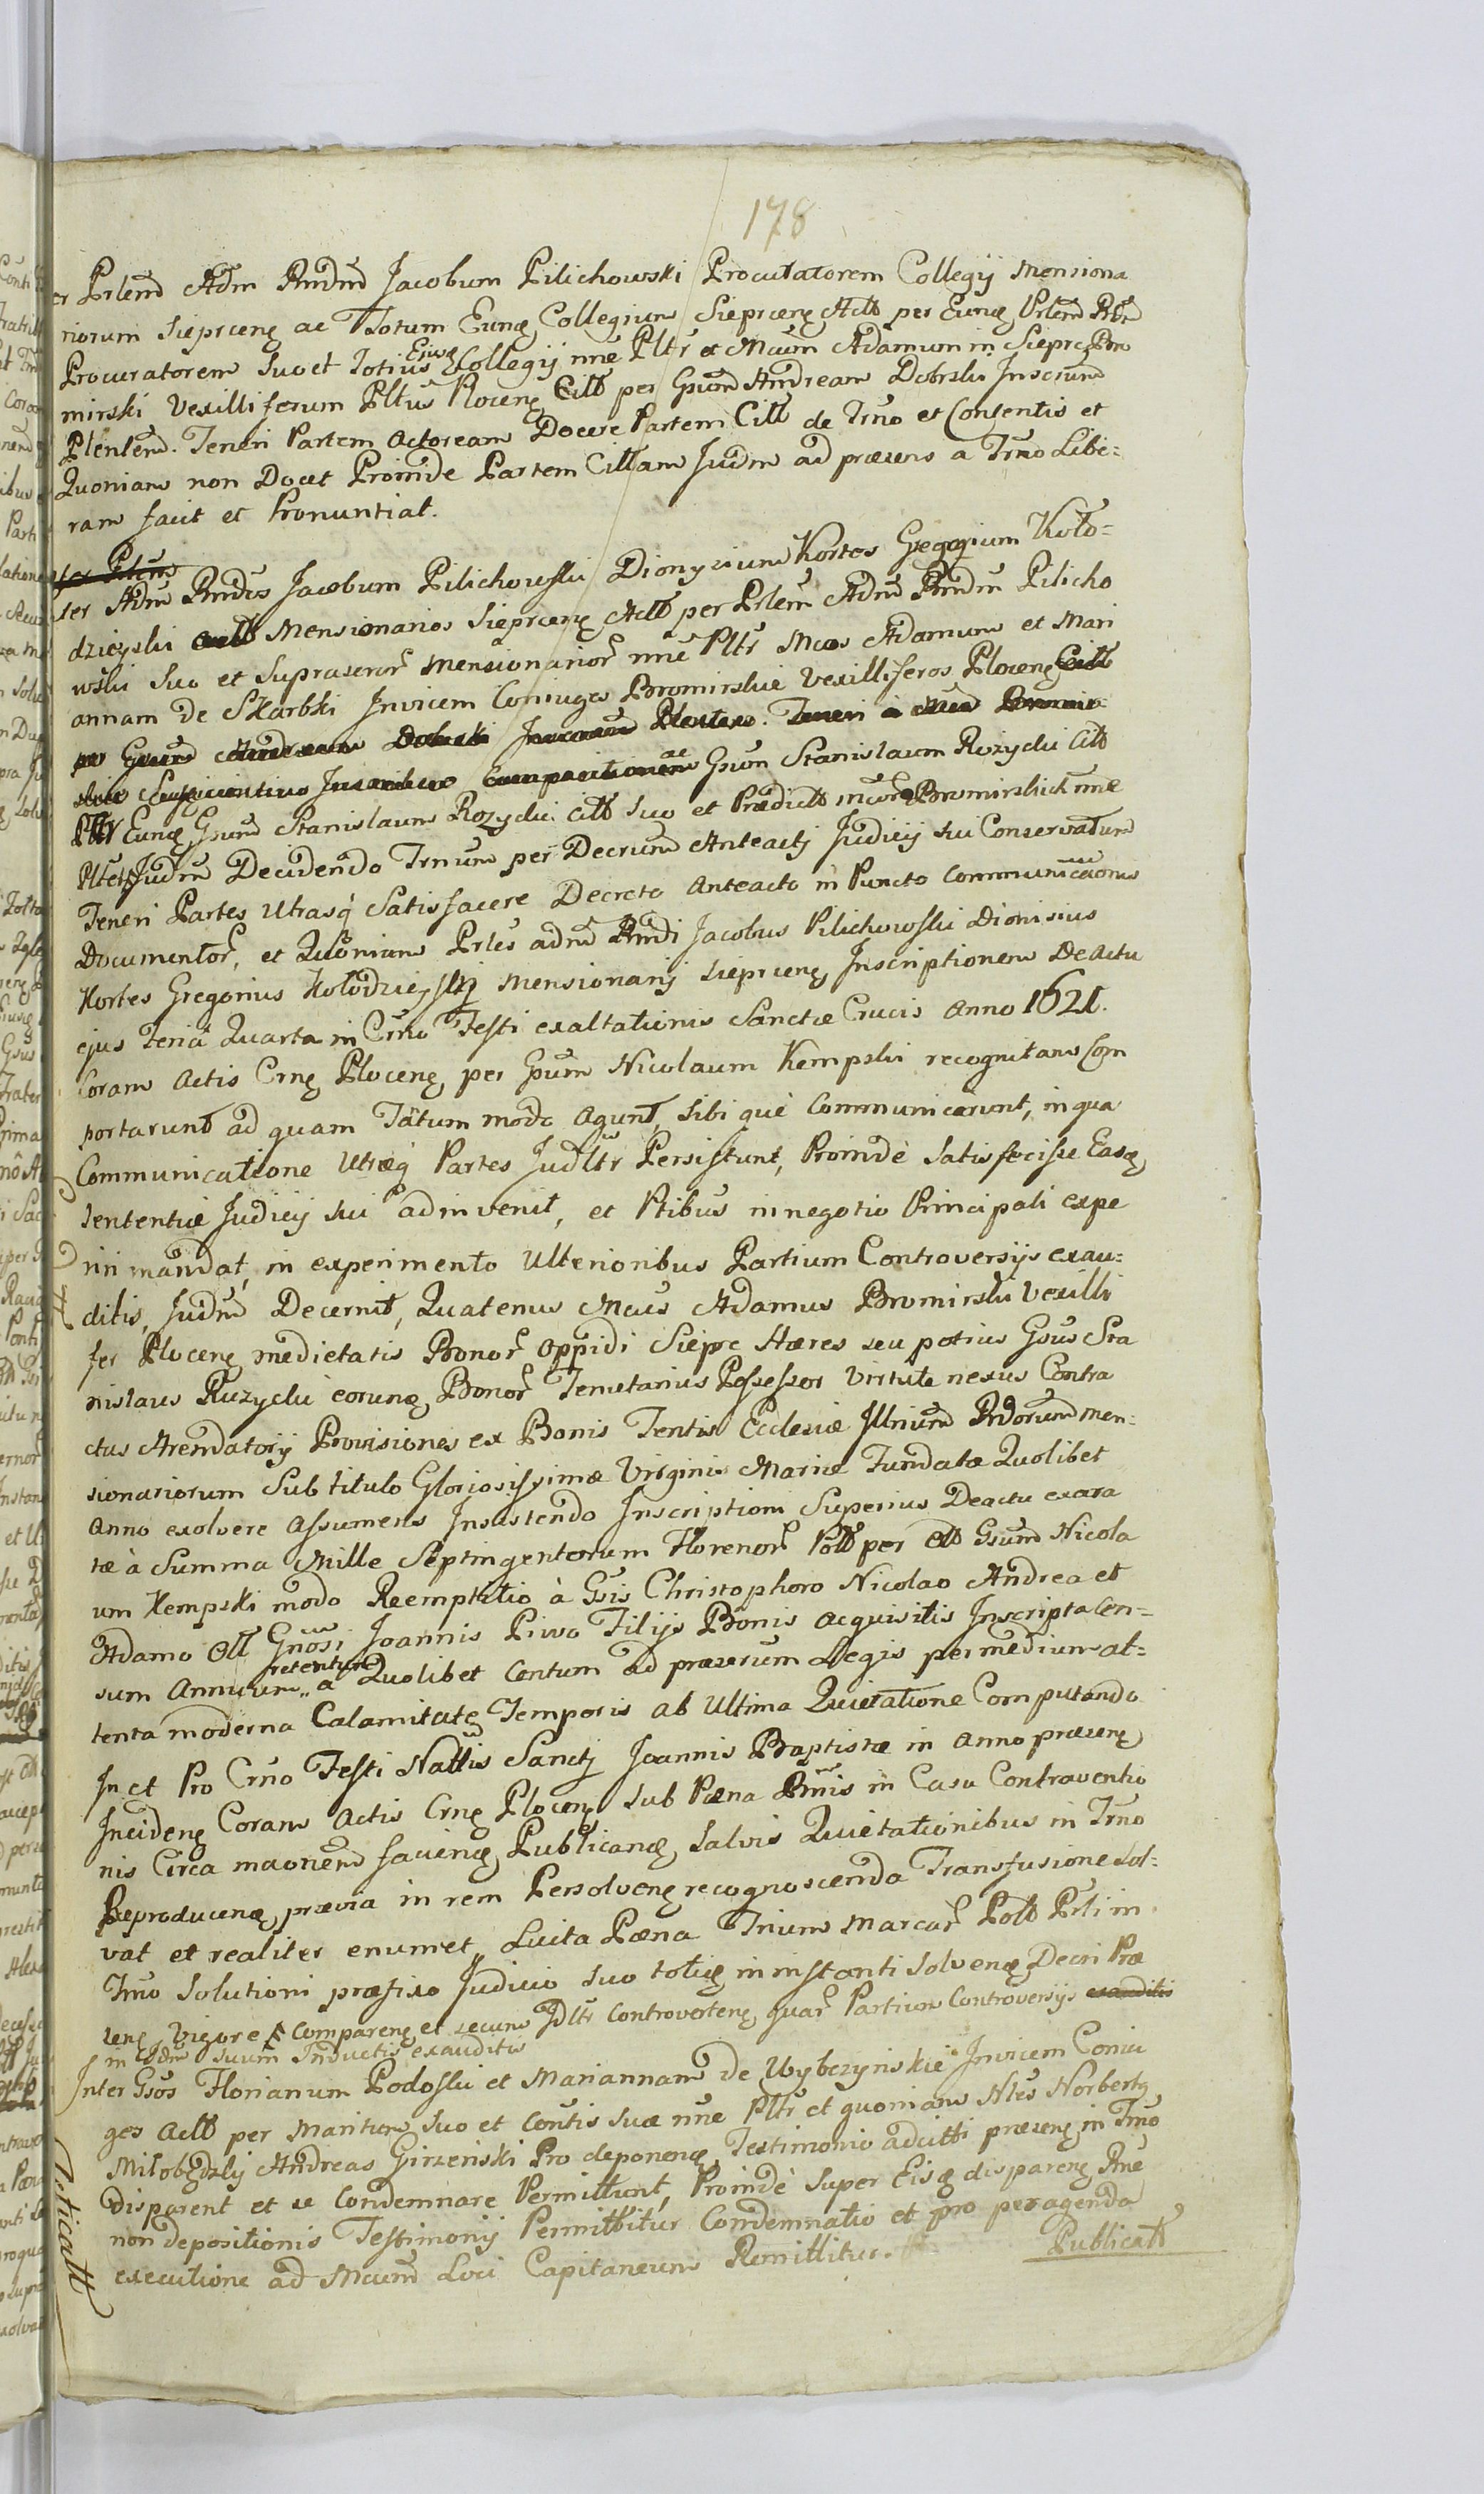 178
er Prlem Adm Rndm Jacobum Pilichowski Procuratorem Collegij Mensiona
riorum Sieprcen ac Totum Eund Collegium Sieprcen Actt per Eund Prlem Rdm
Procuratorem Suo et Totius Ejusd Collegij nne Pltr et Mcum Adamum in Sieprc Bro
mirski Vexilliferum Pltus Plocen Citt per Gsum Andream Dobrski Juscrum
Plentem. Teneri Partem Actoream Docere Partem Citt de Trno et Consentis et
Quoniam non Docet Proinde Partem Cittam Judm ad præsens a Trno Libe:
ram facit et Pronuntiat.
ter Adm Rndos Jacobum Pilichowski Dionyzium Kortes Gregorium Koło=
dzieyski Mensionarios Sieprcen Actt per Prlem Adm Rndm Pilicho
wski Suo et Supraseror Mensionarior nne Pltr Mcos Adamum et Mari
annam de Skarbki Invicem Coniuges Bromirskie Vexilliferos Plocen Citt
per Gsum Andream Dobrski Juscrum Plentem. Teneri a Mco Bromir
skie Comparitionem ac Gsum Stanislaum Rozycki Citt
Pltr Eund Gsum Stanislaum Rozycki Citt Suo et Prædictt mcor Bromirskich nne
Plter Judm Decidendo Trnum per Decrum Anteactj Judicij sui Conservatum
Teneri Partes Utrasq Satisfacere Decreto Anteacto in Puncto Communicaonis
Documentor, et Quoniam Prles adm Rndi Jacobus Pilichowski Dionisius
Kortes Gregorius Kołodzieyski Mensionarij Sieprcen Inscriptionem De Actu
ejus Feria Quarta in Crno Festi exaltationis Sanctæ Crucis Anno 1621.
Coram Actis Crn Plocen per Gsum Nicolaum Kempski recognitam Com
portarunt ad quam Tatum modo Agunt, Sibi què Communicarunt, in qua
Communicatione Utræq Partes Judltr Persistunt, Proindè Satisfecisse Easd
Sententiæ Judicij sui adinvenit, et Ptibus in negotio Principali expe
riri mandat, in experimento Ulterioribus Partium Controversijs exau:
ditis, Judm Decernit, Quatenus Mcus Adamus Bromirski Vexilli
fer Plocen medietatis Bonor Oppidi Sieprc Hæres seu potius Gsus Sta
nislaus Ruzycki eorund Bonor Temutarius Possessor Virtute nexus Contra
ctus Arendatorij Provisiones ex Bonis Tentis Ecclesiæ Illrium Rndorum Men:
sionariorum Sub titulo Gloriosissimæ Virginis Mariæ Fundatæ Quolibet
Anno exolvere Assumens Insistendo Inscriptioni Superius De actu exara
tæ à Summa Mille Septingentorum Florenor Pott per Ott Gsum Nicola
um Kempski modo Reemptitio à Gsis Christophoro Nicolao Andrea et
Adamo Ott Gnosi Joannis Piwo Filijs Bonis acquisitis Inscripta Cen=
sum Annuum retentum a Quolibet Centum ad præserum Legis per medium at=
tenta moderna Calamitate Temporis ab Ultima Quietatione Computando
In et Pro Crno Festi Nattis Sanctj Joannis Baptistæ in Anno præsen
Inciden Coram Actis Crn Plocen Sub Pæna Bnnis in Casu Contraventio
nis Circa maonem faciend Publicand Salvis Quietationibus in Trno
Reproducend prævia in rem Persolven recognoscenda Transfusione Sol=
vat et realiter enumet Luita Pæna Trium Marcar Pott Prti in
Trno Solutioni præfixo Judicio Suo toties in instanti Solvend Decri Præ
sen Vigore Comparen et secum Jdltr Controverten quar Partium Controversijs exauditis
in Jdm suum Inductis exauditis
Inter Gsos Florianum Podoski et Mariannam de Wybczynskie Invicem Coniu
ges Actt per Maritum Suo et Contis Suæ nne Pltr et quoniam Nles Norbertg
Miłobędzki Andreas Girzeński Pro deponend Testimonio adcitti præsen in Trno
disparent et se Condemnare Permittunt, Proindè Super Eisd disparen Rne
non depositionis Testimonij Permittitur Condemnatio et pro peragenda
executione ad Mcum Loci Capitaneum Remittitur.
Publicatt